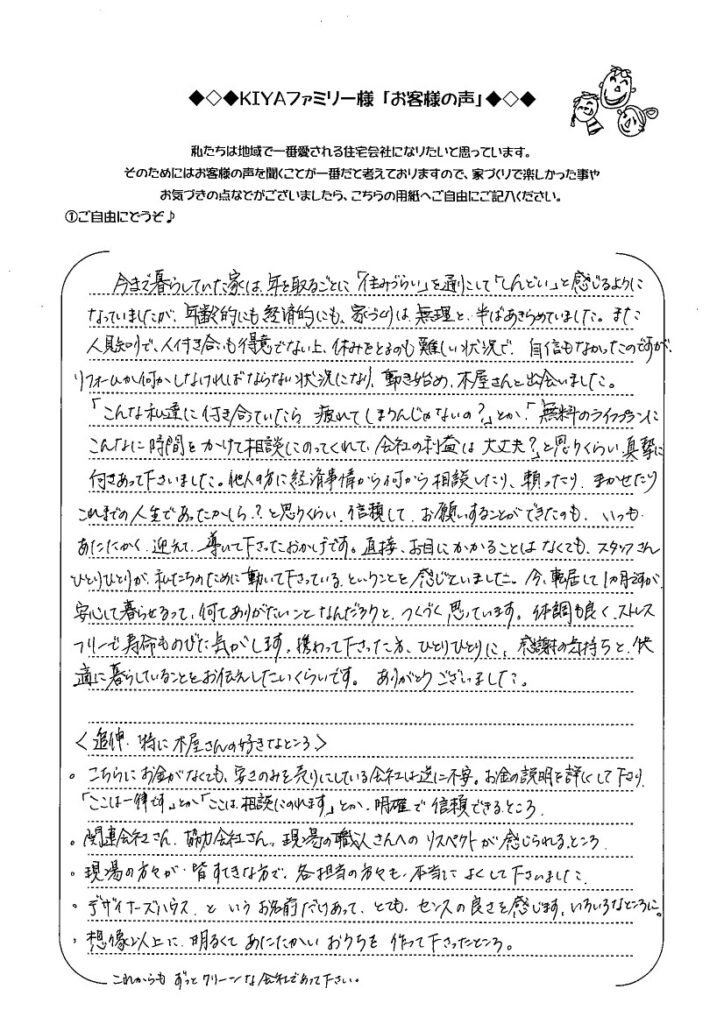 ◆◇◆KIYAファミリー様「お客様の声」◆◇◆
私たちは地域で一番愛される住宅会社になりたいと思っています。
そのためにはお客様の声を聞くことが一番だと考えておりますので、家づくりで楽しかった事や
お気づきの点などがございましたら、こちらの用紙へご自由にご記入ください。
①ご自由にどうぞ♪
今まで暮らしていた家は、年を取るごとに「住みづらい」を通りこして「しんどい」と感じるように
なっていましたが、年齢的にも経済的にも、家づくりは、無理と、半ばあきらめていました。また
人見知りで、人付き合いも得意でない上、休みをとるのも難しい状況で、自信もなかったのですが、
リフォームか何かしなければならない状況になり、動き始め、木屋さんと出会いました。
「こんな私達に付き合っていたら 疲れてしまうんじゃないの?」とか、「無料のライフプランに
こんなに時間をかけて相談にのってくれて、会社の利益は大丈夫?」と思うくらい真摯に
付きあって下さいました。他人の方に経済事情から何から相談したり、頼ったり、まかせたり
これまでの人生であったかしら?と思うくらい、信頼して、お願いすることができたのも、いつも
あたたかく迎えて、導いて下さったおかげです。直接、お目にかかることはなくても、スタッフさん
ひとりひとりが、私たちのために動いて下さっている、ということを感じていました。今、転居して1カ月ですが、
安心して暮らせるって、何てありがたいことなんだろうと、つくづく思っています。体調も良く、ストレス
フリーで寿命ものびた気がします。携わって下さった方、ひとりひとりに、感謝の気持ちと、快
適に暮らしていることをお伝えしたいくらいです。ありがとうございました。
<追伸、特に木屋さんの好きなところ>
。こちらにお金がなくても、安さのみを売りにしている会社は逆に不安。お金の説明を詳しくして下さり、
「ここは一律です」とか「ここは、相談にのれます」とか、明確で信頼できるところ
。関連会社さん、協力会社さん、現場の職人さんへのリスペクトが感じられるところ
・現場の方々が皆すてきな方で、各担当の方々も、本当によくして下さいました
。デザイナーズハウス、というお名前だけあって、とても、センスの良さを感じます、いろいろなところに。
・想像以上に、明るくてあたたかいおうちを作って下さったところ。
これからも ずっとクリーンな会社であって下さい。